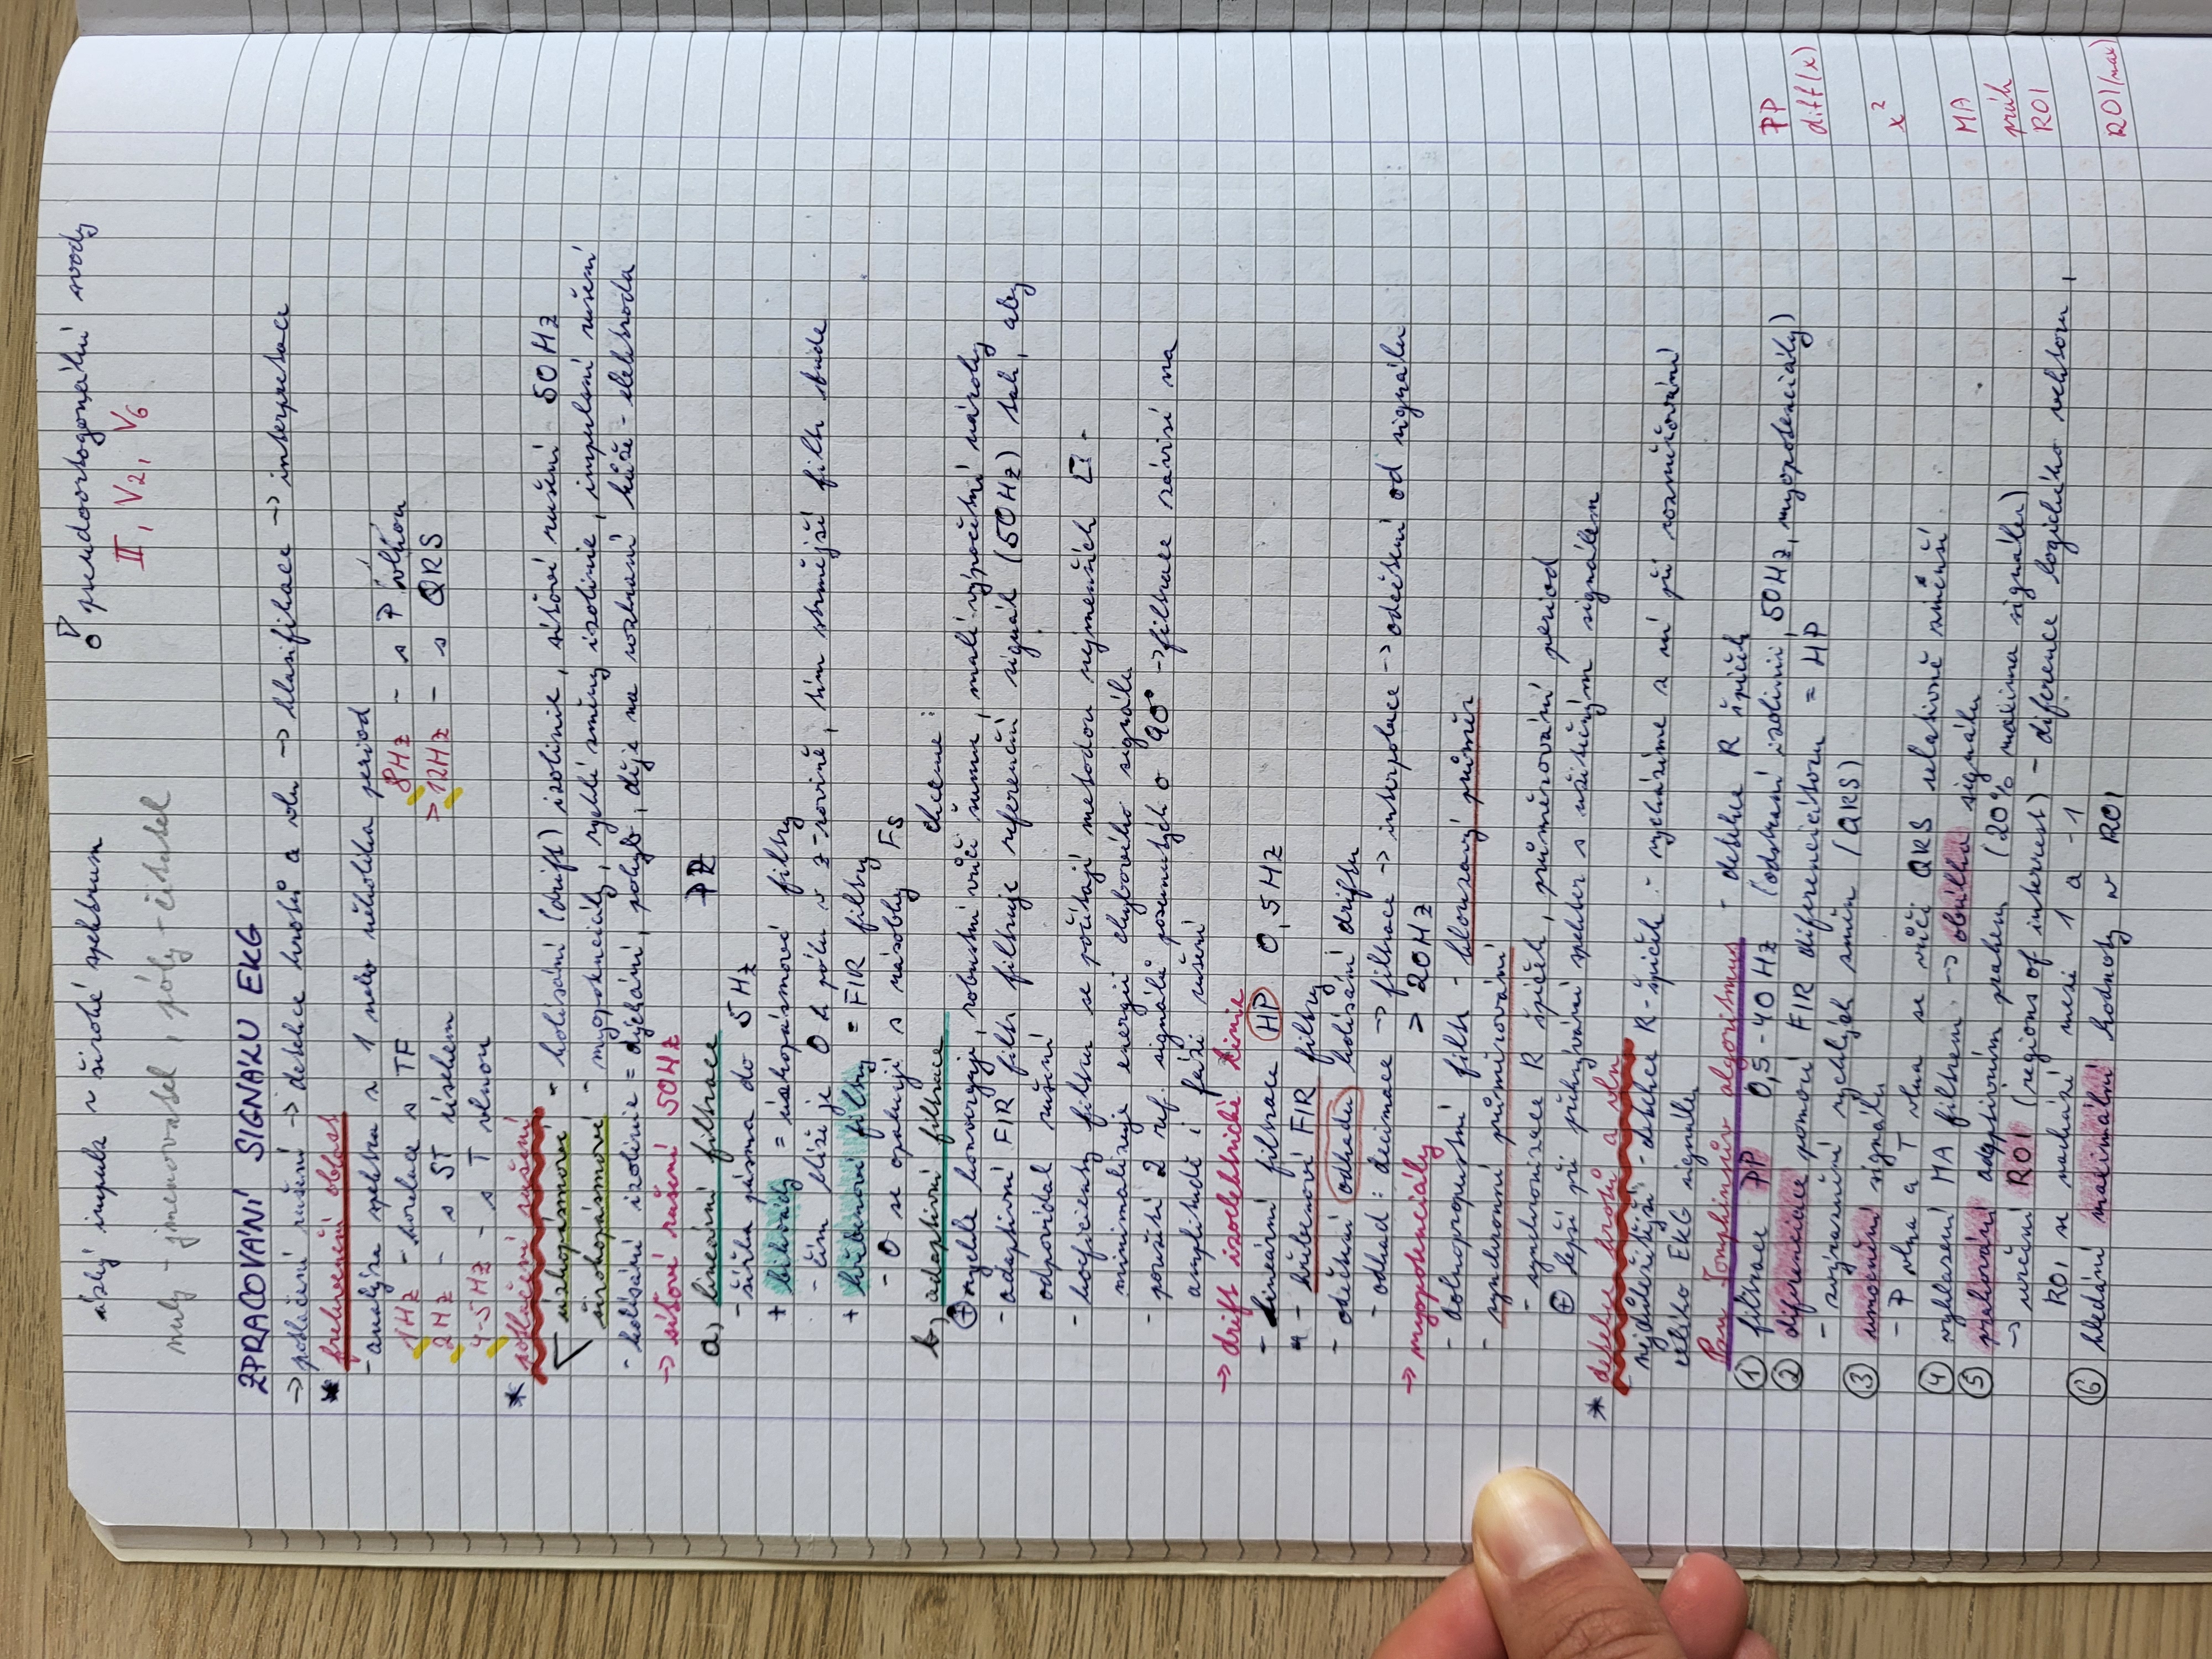 úzký impulz ~ široké spektrum
pseudoortogonální svody
II, V2, V6
nuly - jmenovatel, póly - čitatel
ZPRACOVÁNÍ SIGNÁLU EKG
→ potlačení rušení → detekce hrotů a vln → klasifikace → interpretace
* frekvenční oblast
- analýza spektra z 1 nebo několika period
1Hz - korelace s TF
8Hz - s P vlnou
2Hz - s ST úsekem
> 12Hz - s QRS
4-5Hz - s T vlnou
* potlačení rušení
úzkopásmové - kolísání (drift) izolinie, síťové rušení 50Hz
širokopásmové - myopotenciály, rychlé změny izolinie, impulsní rušení
- kolísání izolinie = dýchání, pohyb, děje na rozhraní kůže - elektroda
→ síťové rušení 50Hz
a) lineární filtrace PZ
- šířka pásma do 5Hz
+ bikvády = úzkopásmové filtry
- čím blíže je 0 k pólu v z-rovině, tím strmější filtr bude
+ hřebenové filtry = FIR filtry
- 0 se opakují s násobky Fs
b) adaptivní filtrace chceme:
⊕ rychle konverguje, robustní vůči šumu, malé výpočetní nároky
- adaptivní FIR filtr filtruje referenční signál (50Hz) tak, aby
odpovídal rušení
- koeficienty filtru se počítají metodou nejmenších □ -
minimalizuje energii chybového signálu
- použití 2 ref. signálů posunutých o 90° → filtrace závisí na
amplitudě i fázi rušení
→ drift izoelektrické linie
- lineární filtrace HP 0,5Hz
- hřebenové FIR filtry
- odečtení odhadu kolísání driftu
- odhad: decimace → filtrace → interpolace → odečtení od signálu
→ myopotenciály > 20Hz
- dolnopropustní filtr - klouzavý průměr
- synchronní průměrování
- synchronizace R špiček, průměrování period
⊕ lepší při překrývání spekter s užitečným signálem
* detekce hrotů a vln
- nejdůležitější - detekce R-špiček - vycházíme z ní při rozměřování
celého EKG signálu
Pan Tompkinsův algoritmus - detekce R špiček
① filtrace PP 0,5-40Hz (odstraní izolinii, 50Hz, myopotenciály)
PP
② diferenciace pomocí FIR diferenciátoru = HP
diff(x)
- zvýraznění rychlých změn (QRS)
③ umocnění signálu
x²
- P vlna a T vlna se vůči QRS relativně zmenší
④ vyhlazení MA filtrem → obálka signálu
MA
⑤ prahování adaptivním prahem (20% maxima signálu)
práh
→ určení ROI (regions of interrest) - diference logického vektoru,
ROI
ROI se nachází mezi 1 a -1
⑥ hledání maximální hodnoty v ROI
ROI(max)